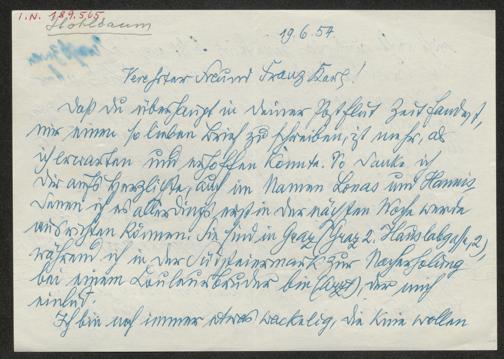 I.N. 189.565
Hohlbaum
19.6.54
Verehrter Freund Franz Karl!
Daß du überhaupt in deiner Postflut Zeit fandest,
mir einen so lieben Brief zu schreiben, ist mehr, als
ich erwarten und erhoffen konnte. So danke ich
Dir aufs herzlichste, auch im Namen Lonas und Hannis
denen ich es allerdings erst in der nächsten Woche werde
ausrichten können. Sie sind in Graz (Graz 2. Haus­labgasse 2),
während ich in der Südsteiermark zur Nacherholung
bei einem Couleurbruder bin (Arzt), der mich
einlud.
Ich bin noch immer etwas wackelig, die Knie wollen